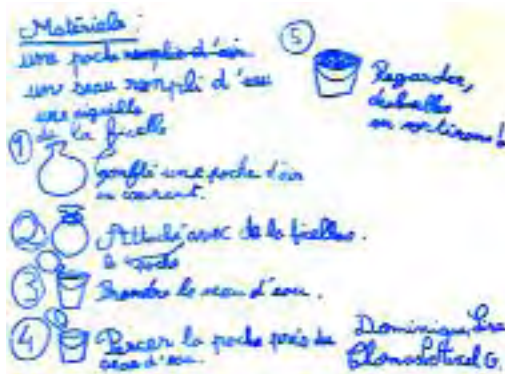 Matériels :
une poche remplis d'air
un seau rempli d'eau
une aiguille
de la ficelle
1 gonflé une poche d'air
en courant.
2 Attaché avec de la ficelle.
la poche
3 Prendre le seau d'eau.
4 Percer la poche près du
seau d'eau.
5 Regarder,
des bulles
en sortirons !
Dominique,
Thomas, Axel G.